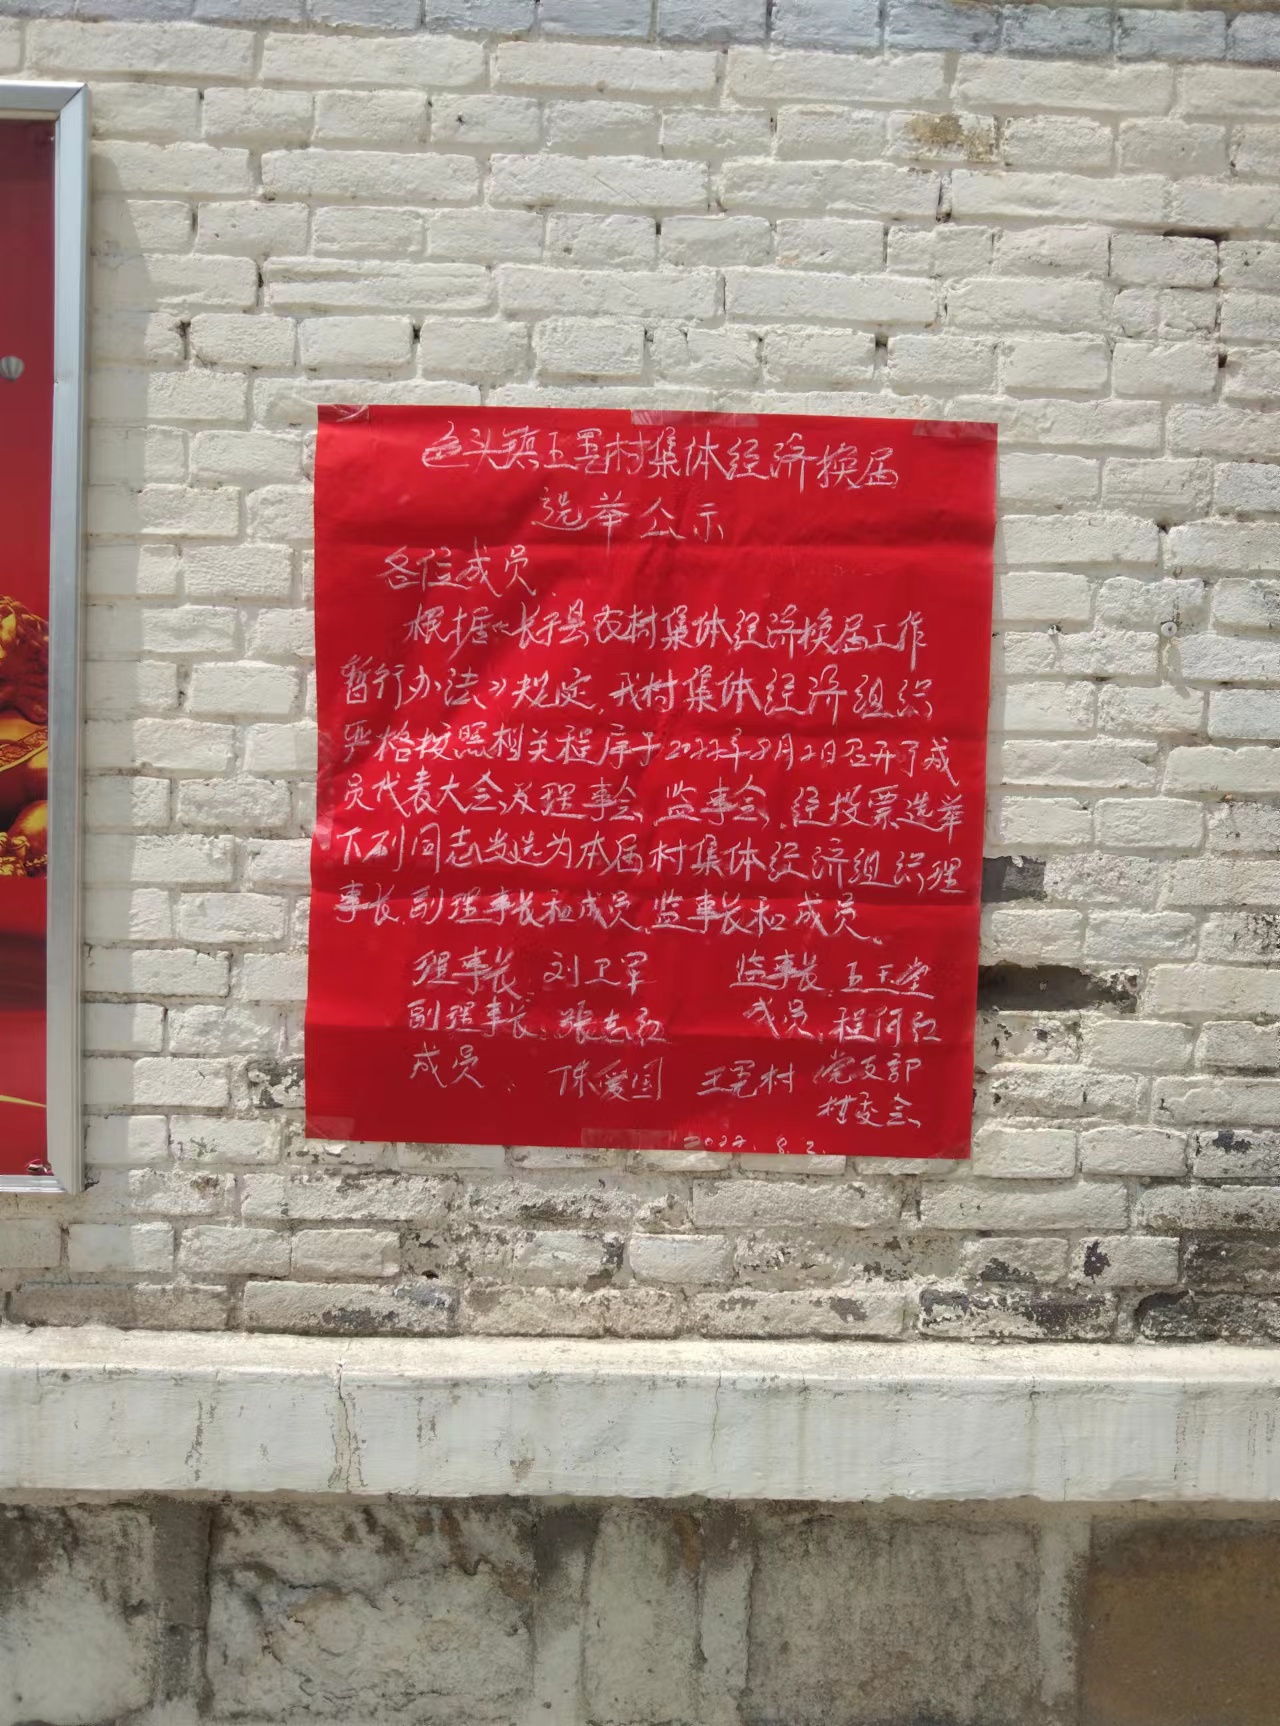 色头镇王晃村集体经济换届
选举公示
各位成员
根据《长子县农村集体经济换届工作
暂行办法》规定,我村集体经济组织
严格按照相关程序于2022年8月2日召开了成
员代表大会及理事会、监事会,经投票选举
下列同志当选为本届村集体经济组织理
事长、副理事长和成员、监事长和成员。
理事长、刘卫军 监事长、王天堂
副理事长、张志红 成员、程何红
成员、陈爱国 王晃村 党支部
村委会
2022.8.2.